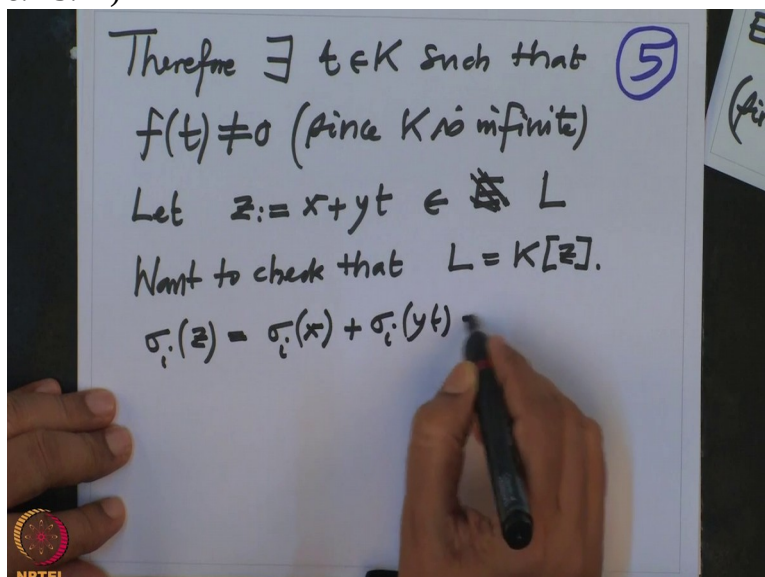 Therefore ∃ t ∈ K such that
5
f(t) ≠ 0 (since K is infinite)
Let z := x + yt ∈ L
Want to check that L = K[z].
σᵢ(z) = σᵢ(x) + σᵢ(yt) =
NPTEL